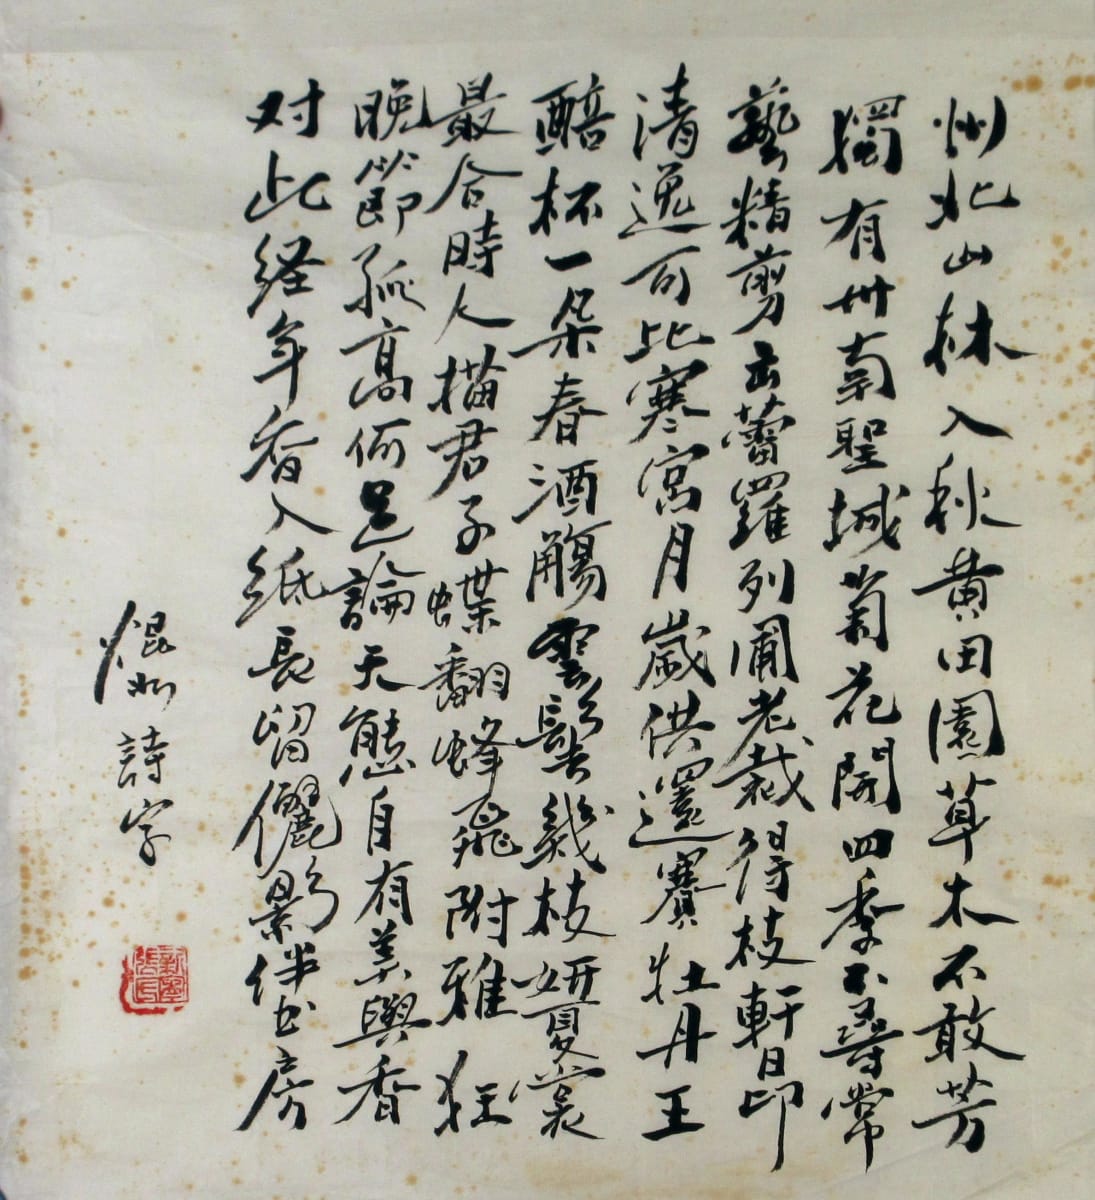 州北山林入秋黄田園草木不敢芳
獨有卅菊聖城萄花開四季不尋常
藝精剪出蕾羅列圃老栽得枝軒昂
清逸可比寒宮月歲供還賽牡丹王
醅杯一朵春酒觴雲鬓幾枝妍霓裳
最合時人描君子蝶翻蜂飛附雅狂
晚節孤高何足論天態自有美與香
对此経年香入紙長留儷影伴書房
焜 詩字